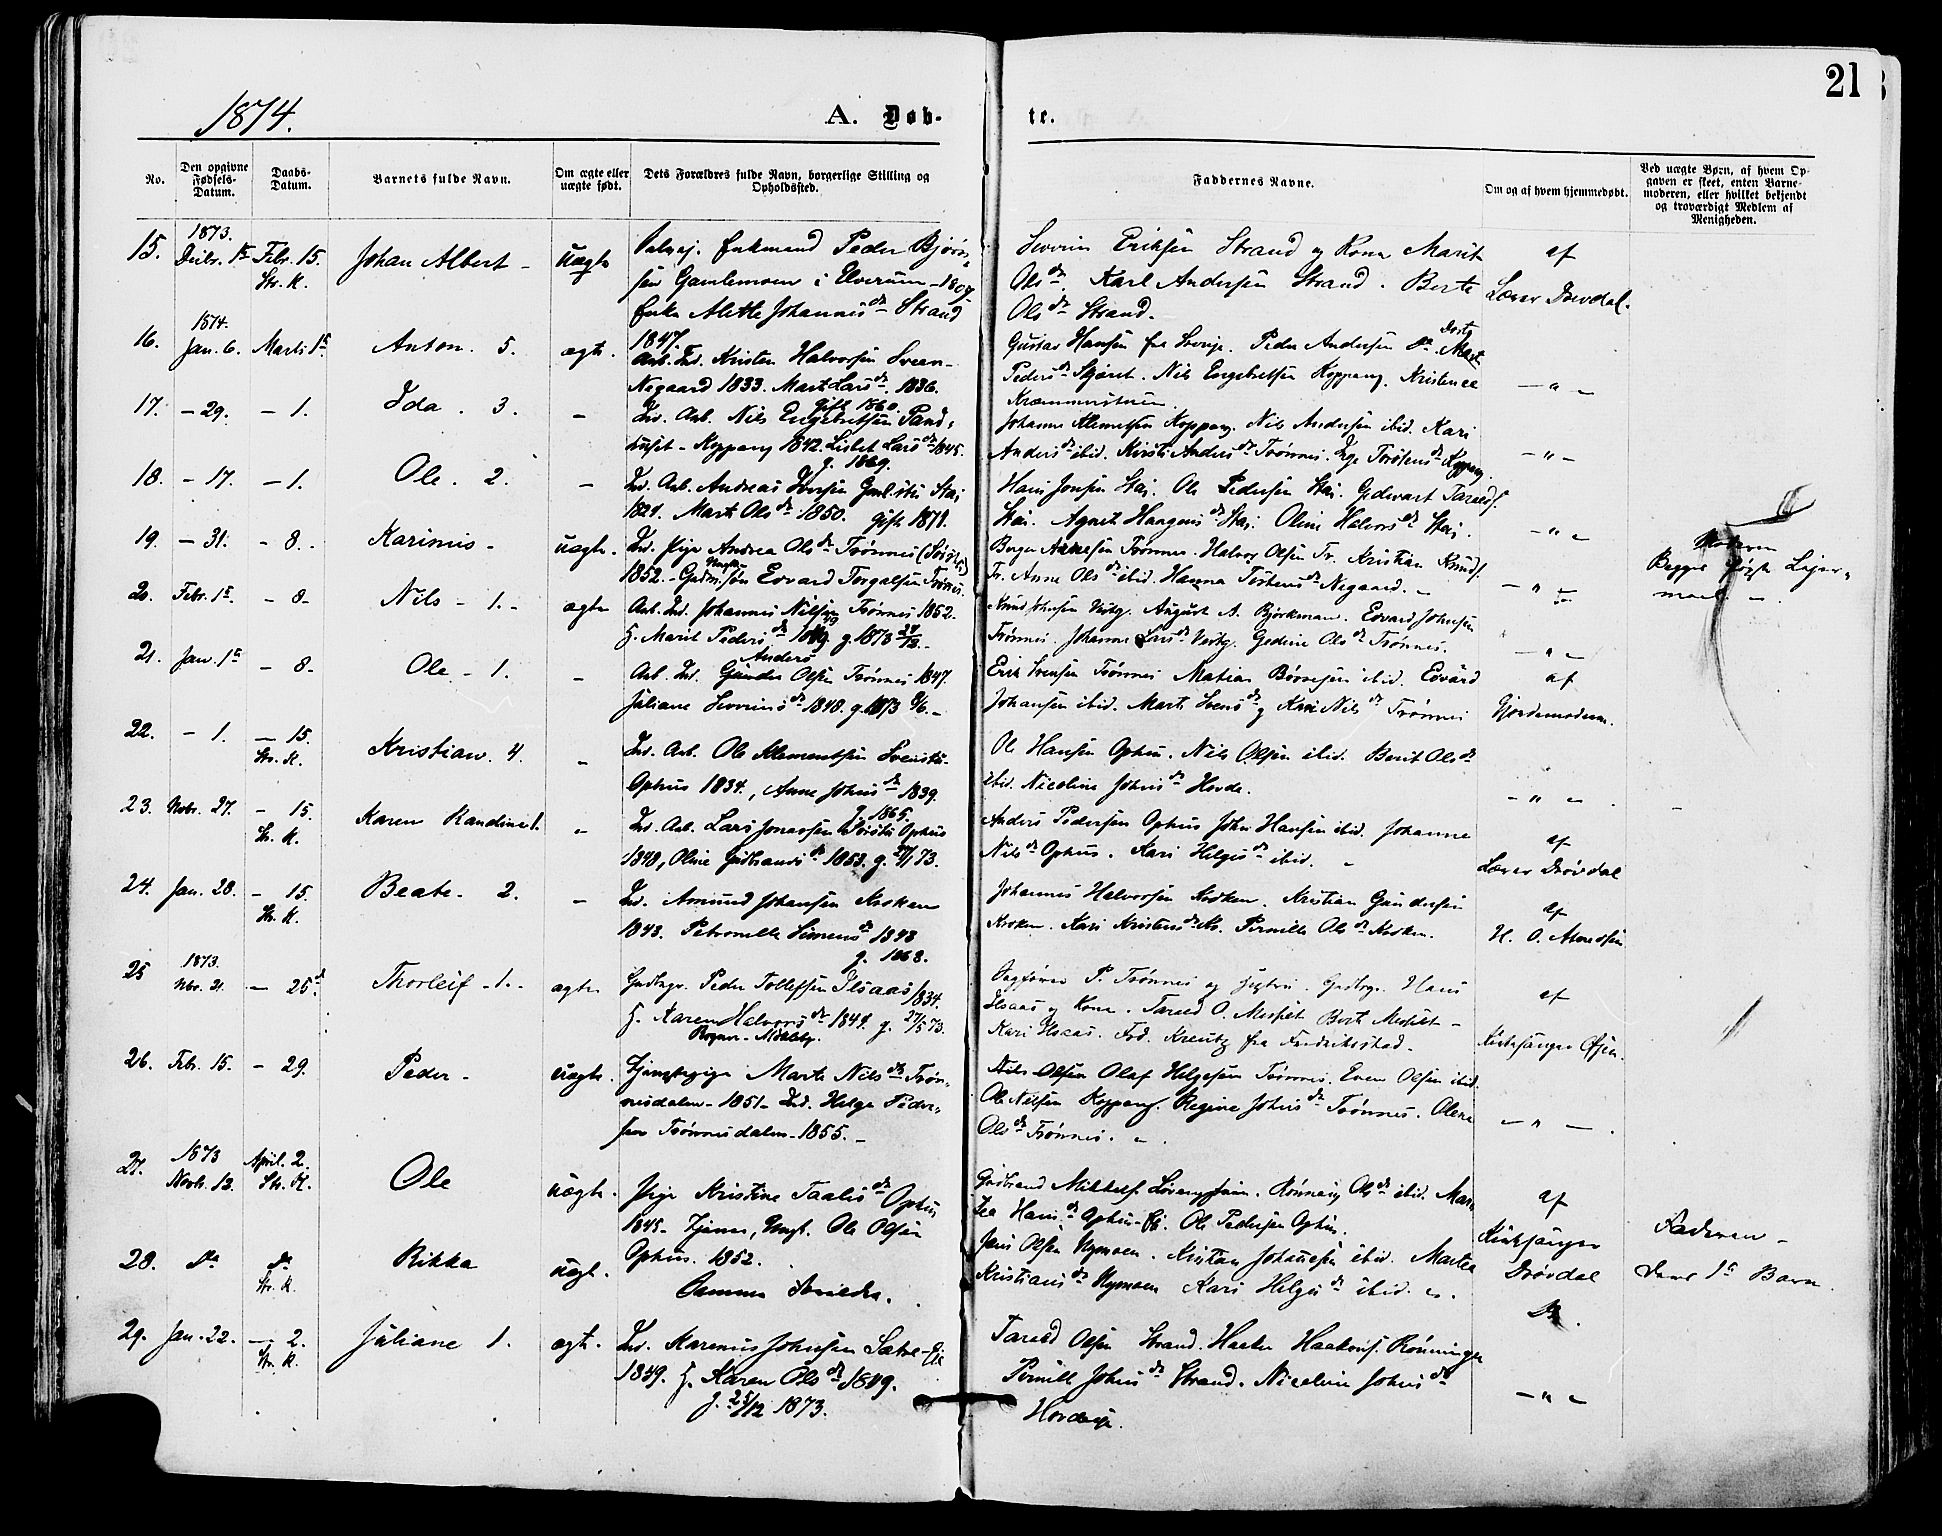 21
1874.
A. Døb-
te.
No.
Den opgivne Fødsels-Datum.
Daabs-Datum.
Barnets fulde Navn.
Om ægte eller uægte født.
Dets Forældres fulde Navn, borgerlige Stilling og Opholdssted.
Faddernes Navne.
Om og af hvem hjemmedøbt.
Ved uægte Børn, af hvem Op-
gaven er skeet, enten Barne-
moderen, eller hvilket bekjendt
og troværdigt Medlem af
Menigheden.
15. 1873. Debr. 1ste Febr. 15. Str. K. Johan Albert - uægte
Enkemand Peder Bjørn-
sen Gamlemoen i Elverum - 1807
Enke Alette Johannesdr Strand
1847.
Severin Eriksen Strand og Kone Marit
Olsdr. Karl Andersen Strand. Berte
Olsdr Strand.
af
Lærer Drevdal.
16. 1874. Jan. 6. Marts 1ste Anton. 5. ægte.
Arb. Ind. Kristen Halvorsen Sveen-
Negaard 1833. Mart Larsdr 1836.
gift 1860.
Gustav Hansen fra Sverje. Peder Andersen
Pedersdr Skjøret. Nils Engebretsen Koppang. Kristence
- " -
17. - 29. - 1. Ida. 3. -
Ind. Arb. Nils Engebretsen Sand-
- Koppang 1842. Lisbet Larsdr 1845.
g. 1869.
Johanne Klemetsen Koppang. Nils Andersen ibid. Kari
Andersdr ibid. Kirsti Andersdr Trønnes. Inge Torstensdr Koppang
- " -
18. - 17. - 1. Ole. 2. -
Ind. Arb. Andreas Iversen Stai
1821. Marte Olsdr 1850. gift 1871.
Hans Jonsen Stai. Ole Pedersen Stai. Gedevart Taralds.
Stai. Agnete Haagensdr Stai. Oline Halvorsdr Stai.
- " -
19. - 31. - 8. - Karinus - uægte.
Ind. Pige Andrea Olsdr Trønnes
1852. - Gudm.søn Edvard Torgalsen Trønnes.
Berger Arnesen Trønnes. Halvor Olsen Tr. Kristian Knuds.
Tr. Anne Olsdr ibid. Hanna Torstensdr Negaard. -
- " -
Moderen
Begges første Leier-
maal -.
20. Febr. 1ste - 8 - Nils - 1. - ægte
Arb. Ind. Johannes Nilsen Trønnes 1852.
H. Marit Pedersdr 1849. g. 1873 27/12. -
Knud Johnsen Vestg. August A. Bjørkman. Edvard Johnsen
Trønnes. Johanne Larsdr Vestg. Gedine Olsdr Trønnes.
- " -
21. Jan. 1ste - 8 - Ole - 1. -
Anders
Arb. Ind. Gunder Olsen Trønnes 1847.
Juliane Severinsdr 1848. g. 1873 -
Erik Svensen Trønnes Matias Børresen ibid. Edvard
Johansen ibid. Mart Svensdr og Kari Nilsdr Trønnes
af
Gjordemoderen.
22. - 1. - 15. Str. K. Kristian. 4. -
Ind. Arb. Ole Klementsen
Ophus 1834., Anne Johnsdr 1839.
g. 1865.
Ole Hansen Ophus. Nils Olsen ibid. Berit Olsdr
ibid. Nicoline Johnsdr Horde.
- " - .
23. Nobr. 27. - 15. Str. K. Karen Randine 1. -
Ind. Arb. Lars Jonassen Ophus
1848, Oline Gudbrandsdr 1853. g. 73.
Anders Pedersen Ophus John Hansen ibid. Johanne
Nilsdr Ophus. Kari Helgesdr ibid. -
af
Lærer Drøvdal
24. Jan. 28. - 15. Str. K. Beate. 2. -
Ind. Amund Johansen Kroken
1843. Petronelle Simensdr 1843
g. 1868.
Johannes Halvorsen Kroken. Kristian Gundersen
Kroken. Kari Kristensdr Kr. Pernille Olsdr Kroken.
af
H. O. Amundsen
25 1873. Nbr. 21. - 25de Thorleif - 1. - ægte
Gaardbrgr. Peder Tollefsen Ilsaas 1834.
H. Karen Halvorsdr 1849. g. 27/5 73.
P. Trønnes og Hustru. Gaardbrgr. Hans
Ilsaas og Kone. Tarald O. Messelt Berte Messelt -
Kari Ilsaas. Fred. Kreutz fra Fredriksstad.
af
Kirkesanger
26. Febr. 15. - 29. Peder - uægte.
Tjenestepige Marte Nilsdr Trøn-
nesdalen - 1851 - Ind. Helge Peder-
sen Trønnesdalen - 1855. -
Nils Olsen Olaf Helgesen Trønnes. Even Olsen ibid.
Ole Nilsen Koppang. Regine Johnsdr Trønnes. Olene
Olsdr Trønnes. -
- " - .
27. 1873 Novbr. 13. April. 2. Str. K. Ole uægte.
Pige Kristine Taalesdr Ophus
1845 - Tjener, Ungk. Ole Olsen
Ophus. 1852.
Gudbrand Mikkels. . Rønnaug Olsdr ibid. Mar-
Hansdr Ophus-Ei. Ole Pedersen Ophus.
af
Kirkesanger
Drøvdal
Faderen -
Deres 1ste Barn.
28. do do Str. K. Rikka uægt.
Samme Forældre.
Jens Olsen Nymoen. Kristian Johannesen ibid. Martea
Kristiansdr Nymoen Kari Helgesdr ibid. -.
Do.
29. Jan. 22. - 2. Str. K. Juliane 1. ægt.
Ind. Karenus Johnsen Sætre-Eie
1849. H. Karen Olsdr 1849.
g. 25/12 1873.
Tarald Olsen Strand. Haaken Haakons. Rønningen
Pernille Johnsdr Strand. Nicoline Johnsdr
- " -